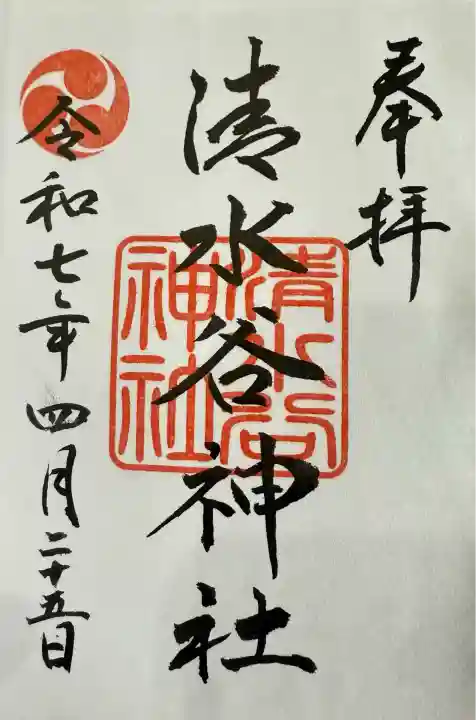 奉拝
清水谷神社
清水谷
神社
令和七年四月二十五日